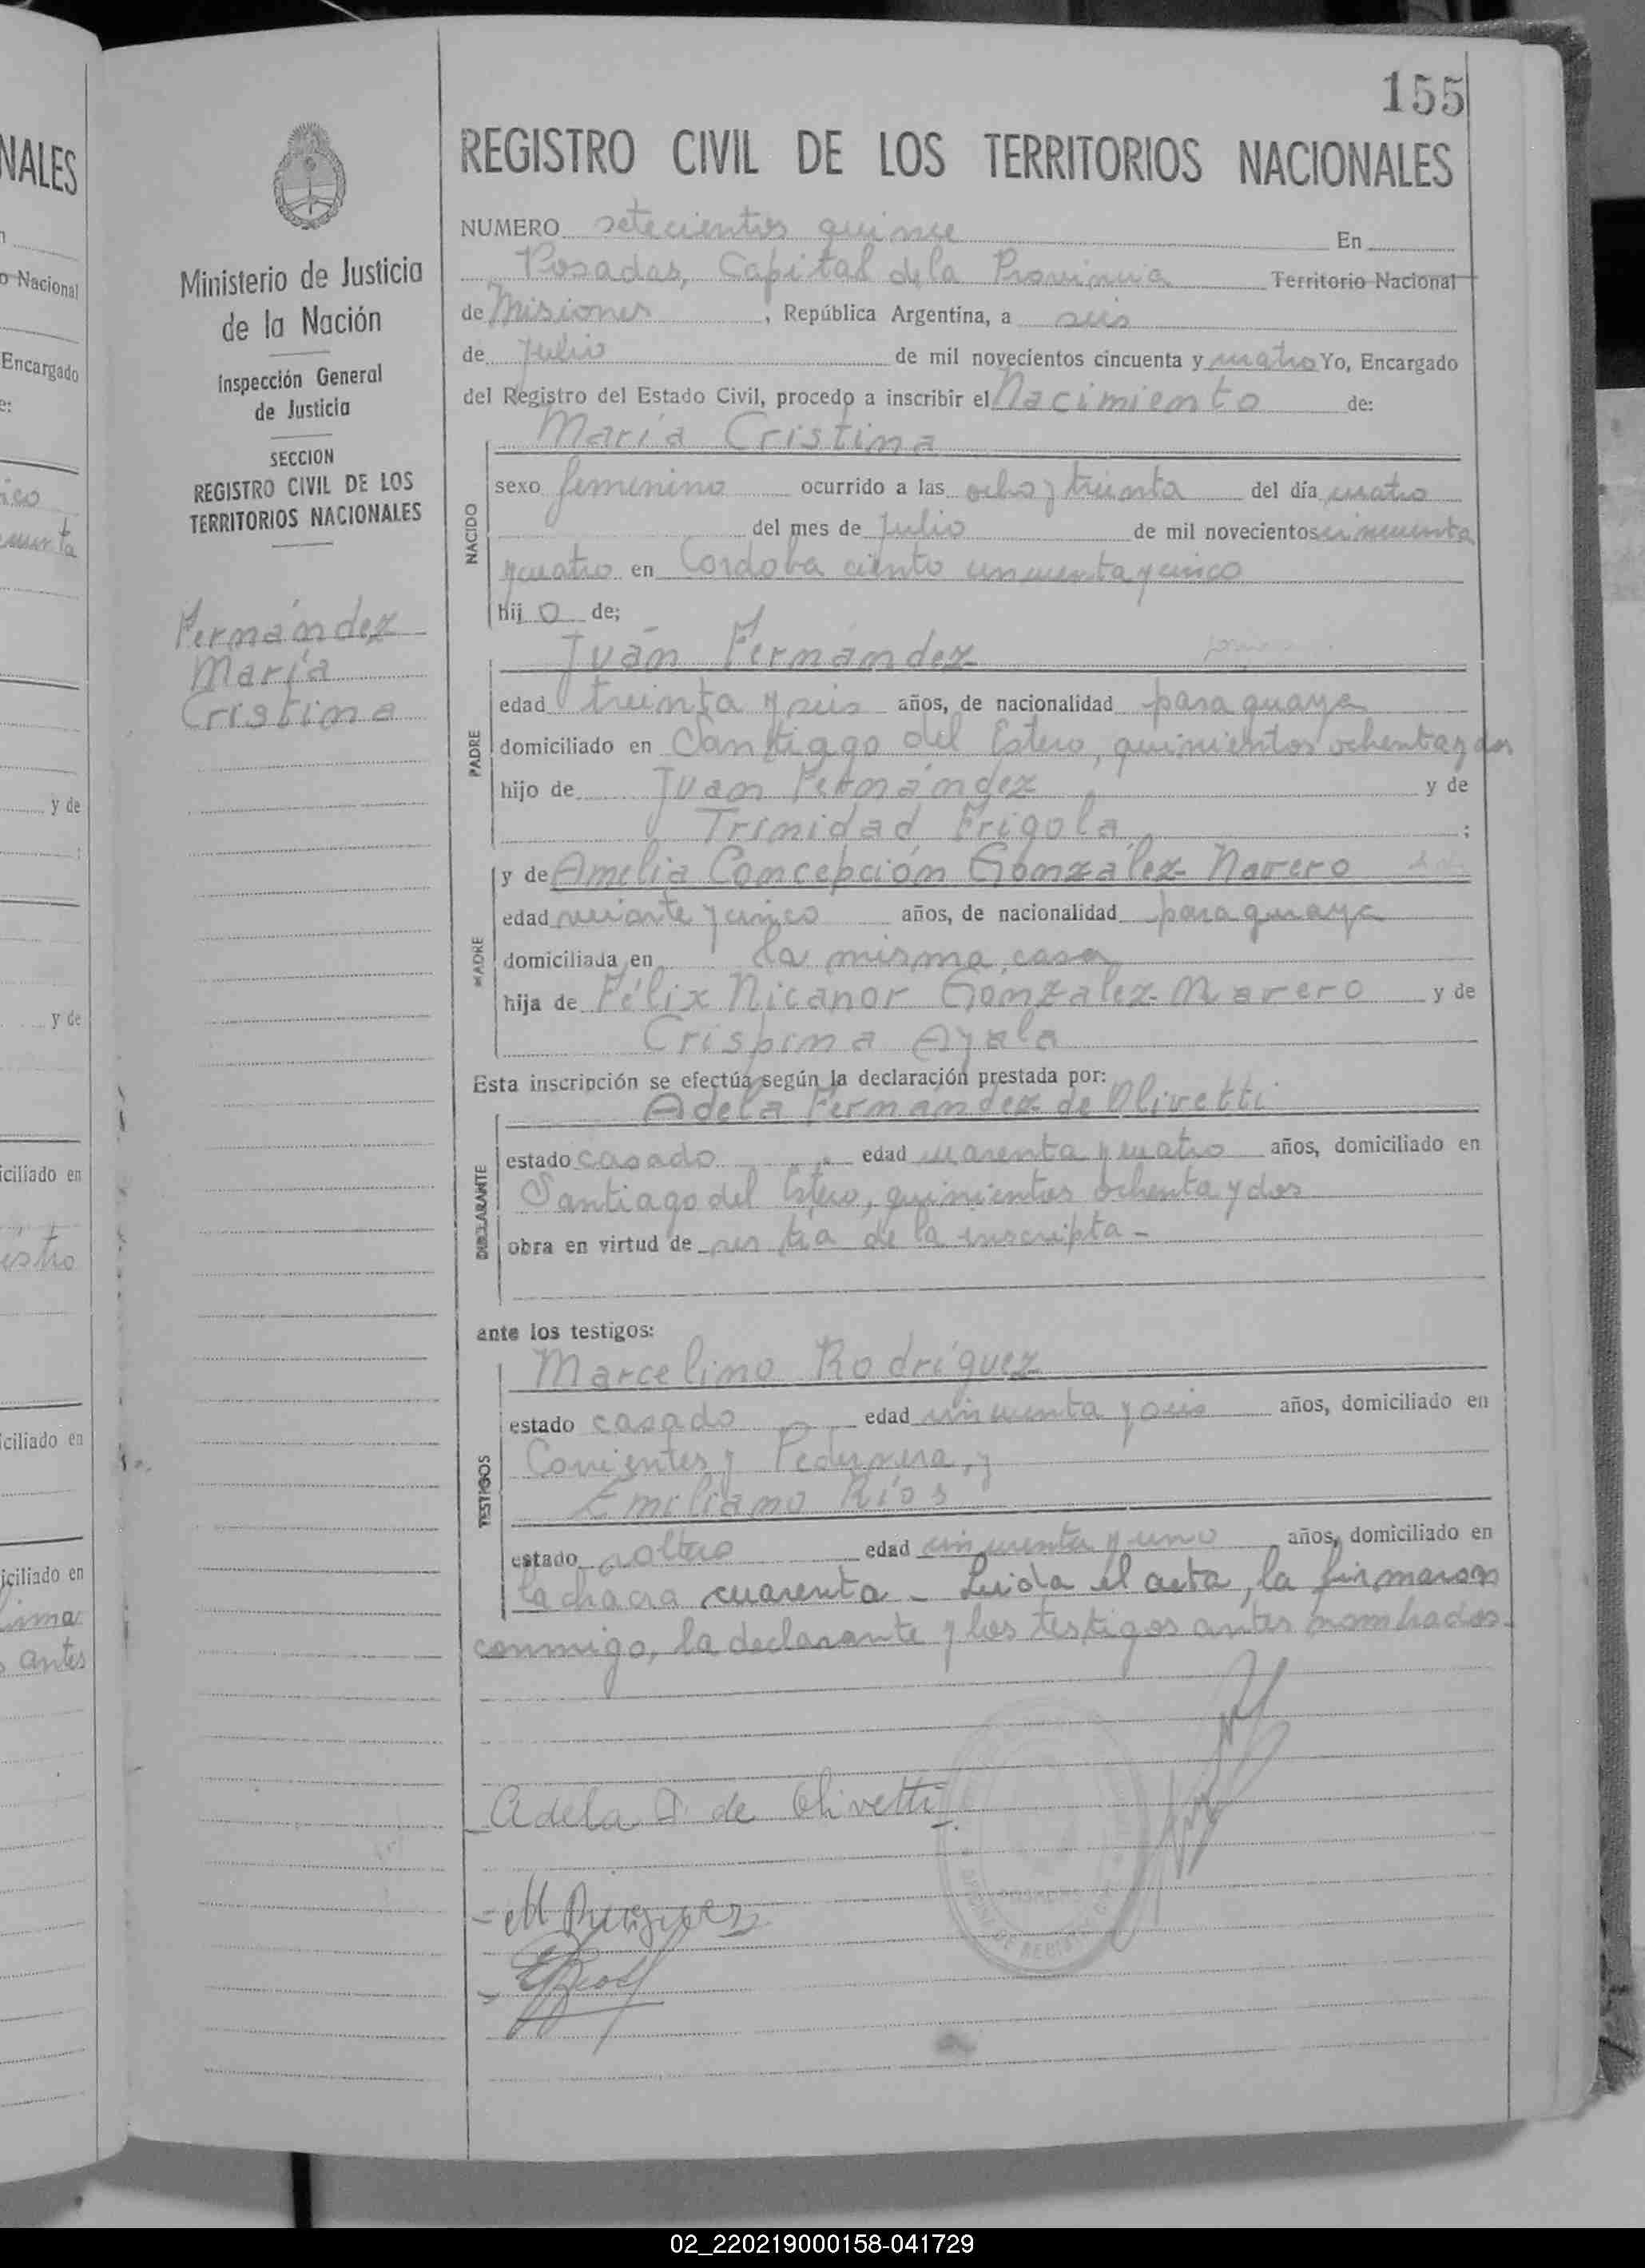 155
REGISTRO CIVIL DE LOS TERRITORIOS NACIONALES
Ministerio de Justicia
de la Nación
Inspección General
de Justicia
SECCION
REGISTRO CIVIL DE LOS
TERRITORIOS NACIONALES
Fernández
María
Cristina
NUMERO setecientos quince En
Posadas, Capital de la Provincia Territorio Nacional
de Misiones, República Argentina, a seis
de Julio de mil novecientos cincuenta y cuatro Yo, Encargado
del Registro del Estado Civil, procedo a inscribir el Nacimiento de:
María Cristina
NACIDO
sexo femenino ocurrido a las ocho y treinta del día cuatro
del mes de Julio de mil novecientos cincuenta
y cuatro en Córdoba ciento cincuenta y cinco
hij o de;
Juán Fernández
PADRE
edad treinta y seis años, de nacionalidad paraguaya
domiciliado en Santiago del Estero, quinientos ochenta y dos
hijo de Juan Fernández y de
Trinidad Frigola ;
y de Amelia Concepción González Navero
MADRE
edad veinte y cinco años, de nacionalidad paraguaya
domiciliada en la misma casa
hija de Félix Nicanor Gonzalez Navero y de
Crispina Ayala
Esta inscripción se efectúa según la declaración prestada por:
Adela Fernández de Olivetti
DECLARANTE
estado casado edad cuarenta y cuatro años, domiciliado en
Santiago del Estero, quinientos ochenta y dos
obra en virtud de ser tía de la inscripta -
ante los testigos:
Marcelino Rodríguez
TESTIGOS
estado casado edad cincuenta y seis años, domiciliado en
Corrientes y Pedernera, y
Emiliano Ríos
estado soltero edad cincuenta y uno años, domiciliado en
la chacra cuarenta - Leida el acta, la firmaron
conmigo, la declarante y los testigos antes nombrados.
Adela F. de Olivetti
02_220219000158-041729